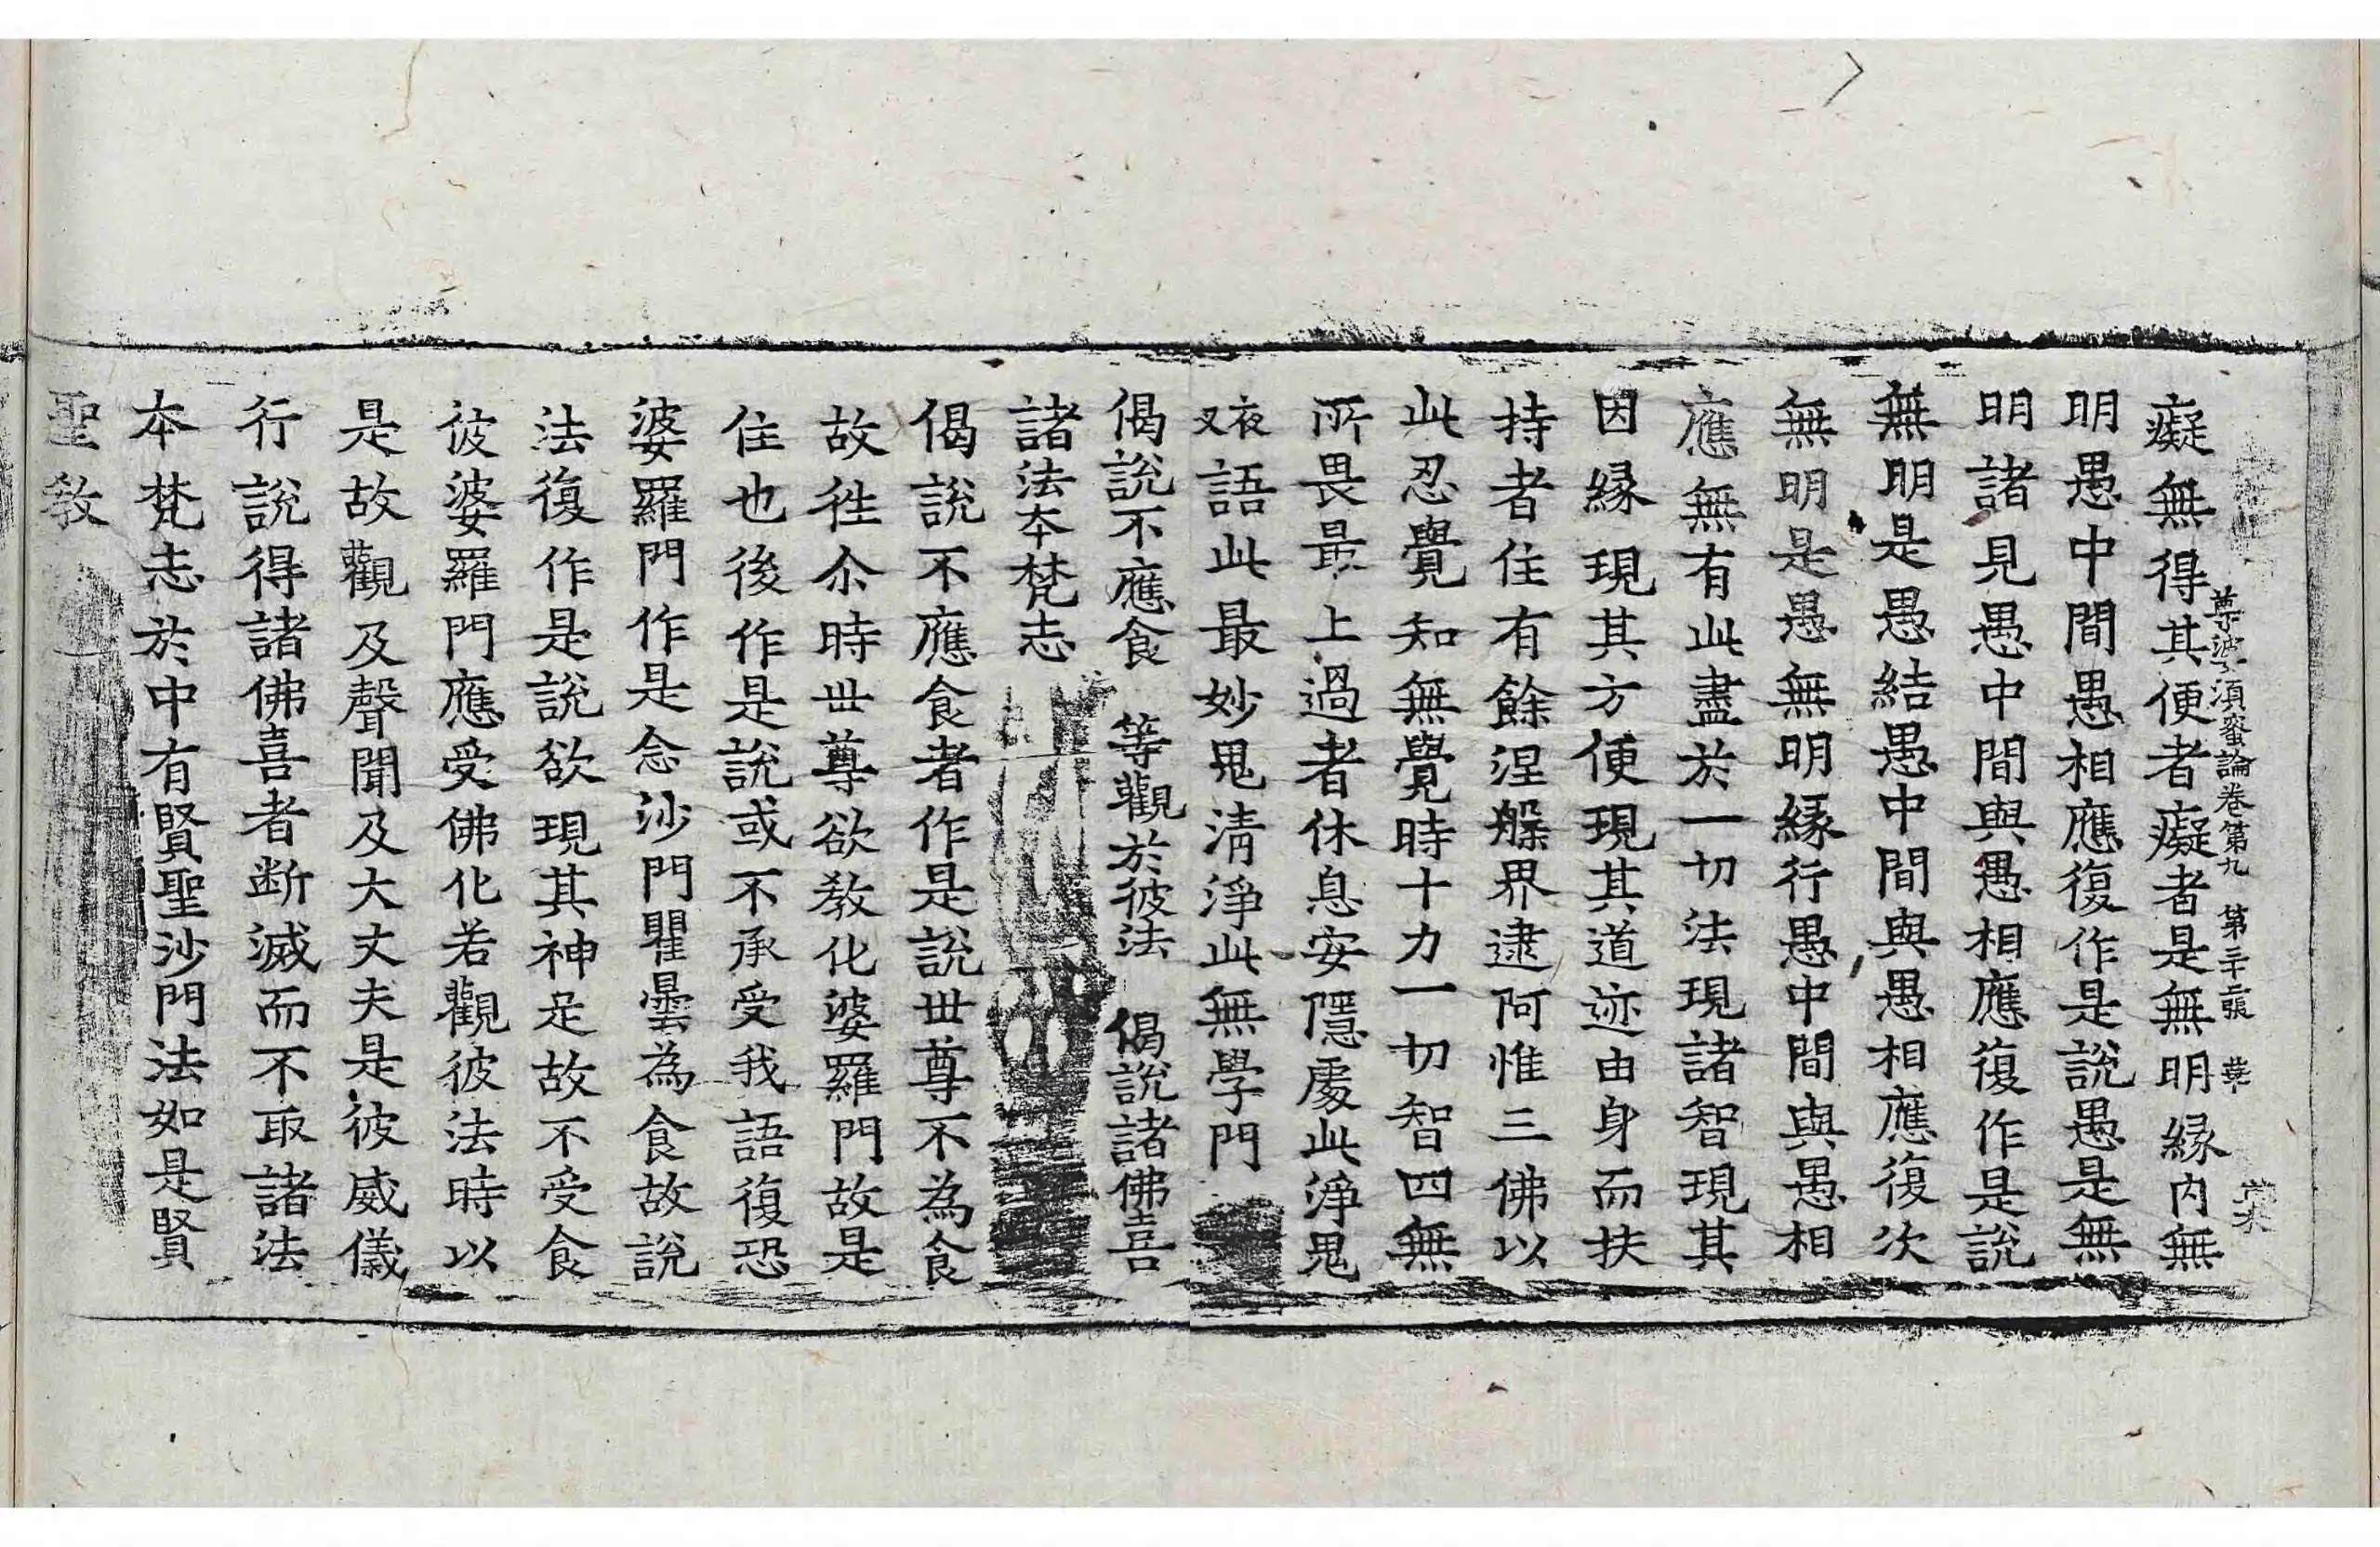 尊婆須蜜論卷第九 第三十二張 華
癡無得其便者癡者是無明縁内無
明愚中間愚相應復作是說愚是無
明諸見愚中間與愚相應復作是說
無明是愚結愚中間與愚相應復次
無明是愚無明縁行愚中間與愚相
應無有此盡於一切法現諸智現其
因縁現其方便現其道迹由身而扶
持者住有餘涅槃界逮阿惟三佛以
此忍覺知無覺時十力一切智四無
所畏最上過者休息安隱處此淨鬼
夜叉語此最妙鬼清淨此無學門
偈說不應食 等觀於彼法 偈說諸佛喜
諸法本梵志
偈說不應食者作是說世尊不為食
故徃尒時世尊欲教化婆羅門故是
住也後作是說或不承受我語復恐
婆羅門作是念沙門瞿曇為食故說
法復作是說欲現其神足故不受食
彼婆羅門應受佛化若觀彼法時以
是故觀及聲聞及大丈夫是彼威儀
行說得諸佛喜者断滅而不取諸法
本梵志於中有賢聖沙門法如是賢
聖教